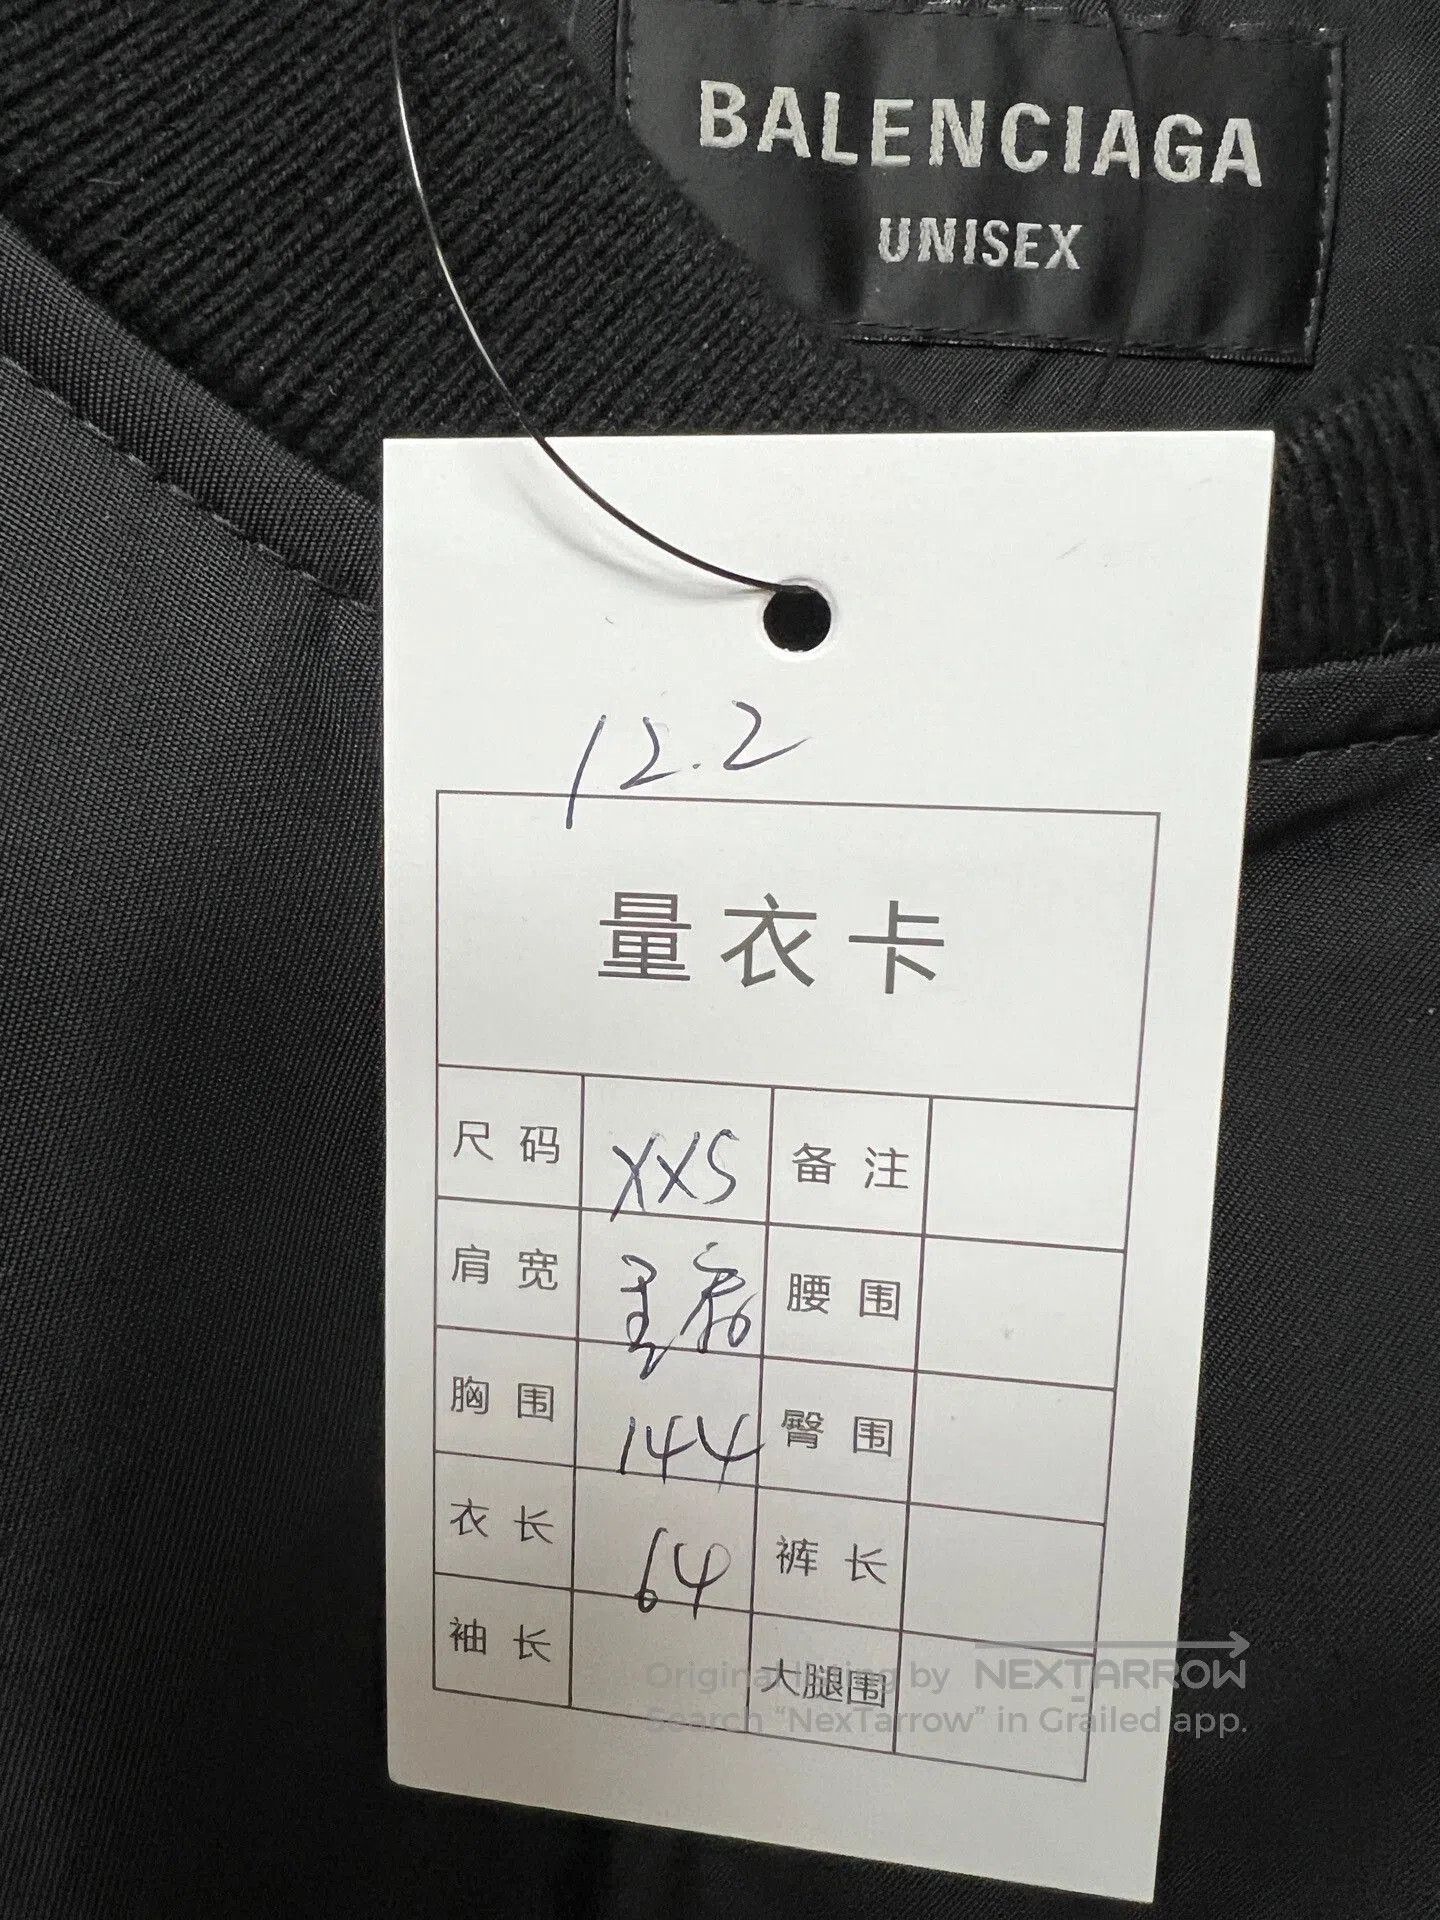 BALENCIAGA
UNISEX
12.2
量衣卡
尺码 XXS 备注
肩宽 腰围
胸围 144 臀围
衣长 64 裤长
袖长 大腿围
Original listing by NEXTARROW
Search “NexTarrow” in Grailed app.